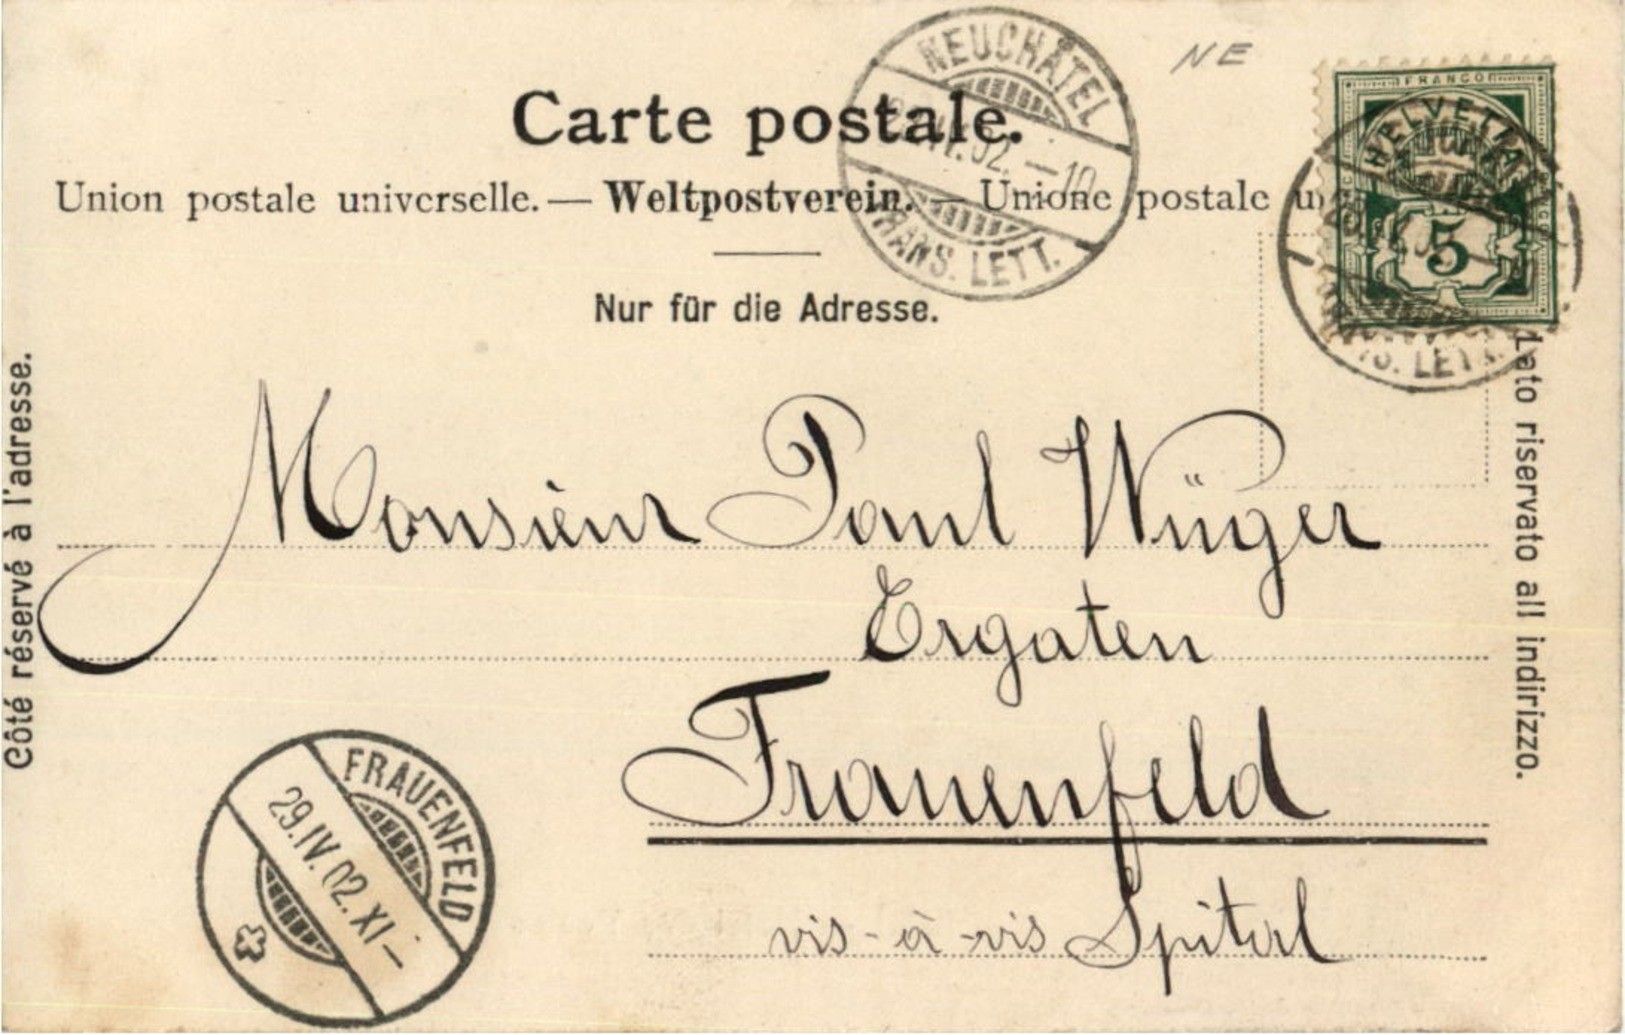 NE
NEUCHÂTEL
IV.02.–10
TRANS. LETT.
FRANCO
HELVETIA
5
LETT.
Carte postale.
Union postale universelle. — Weltpostverein. — Unione postale un
Nur für die Adresse.
Côté réservé à l'adresse.
Lato riservato all indirizzo.
Monsieur Paul Wüger
Ergaten
Frauenfeld
vis-à-vis Spital
FRAUENFELD
29.IV.02.XI–